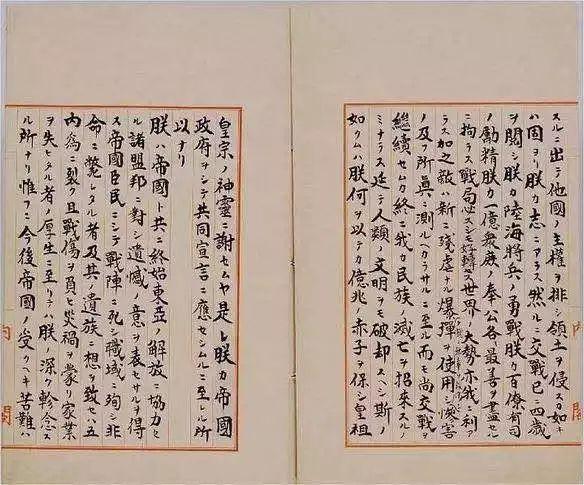 スルニ出テ他國ノ主權ヲ排シ領土ヲ侵スカ如キ
ハ固ヨリ朕カ志ニアラス然ルニ交戰已ニ四歳
ヲ閲シ朕カ陸海將兵ノ勇戰朕カ百僚有司
ノ勵精朕カ一億衆庶ノ奉公各最善ヲ盡セル
ニ拘ラス戰局必スシモ好轉セス世界ノ大勢亦我ニ利ア
ラス加之敵ハ新ニ殘虐ナル爆彈ヲ使用シ慘害
ノ及フ所眞ニ測ルヘカラサルニ至ル而モ尚交戰ヲ
繼續セムカ終ニ我カ民族ノ滅亡ヲ招來スルノ
ミナラス延テ人類ノ文明ヲモ破却スヘシ斯ノ
如クムハ朕何ヲ以テカ億兆ノ赤子ヲ保シ皇祖
皇宗ノ神靈ニ謝セムヤ是レ朕カ帝國
政府ヲシテ共同宣言ニ應セシムルニ至レル所
以ナリ
朕ハ帝國ト共ニ終始東亞ノ解放ニ協力セ
ル諸盟邦ニ對シ遺憾ノ意ヲ表セサルヲ得
ス帝國臣民ニシテ戰陣ニ死シ職域ニ殉シ非
命ニ斃レタル者及其ノ遺族ニ想ヲ致セハ五
内爲ニ裂ク且戰傷ヲ負ヒ災禍ヲ蒙リ家業
ヲ失ヒタル者ノ厚生ニ至リテハ朕ノ深ク軫念ス
ル所ナリ惟フニ今後帝國ノ受クヘキ苦難ハ
内閣